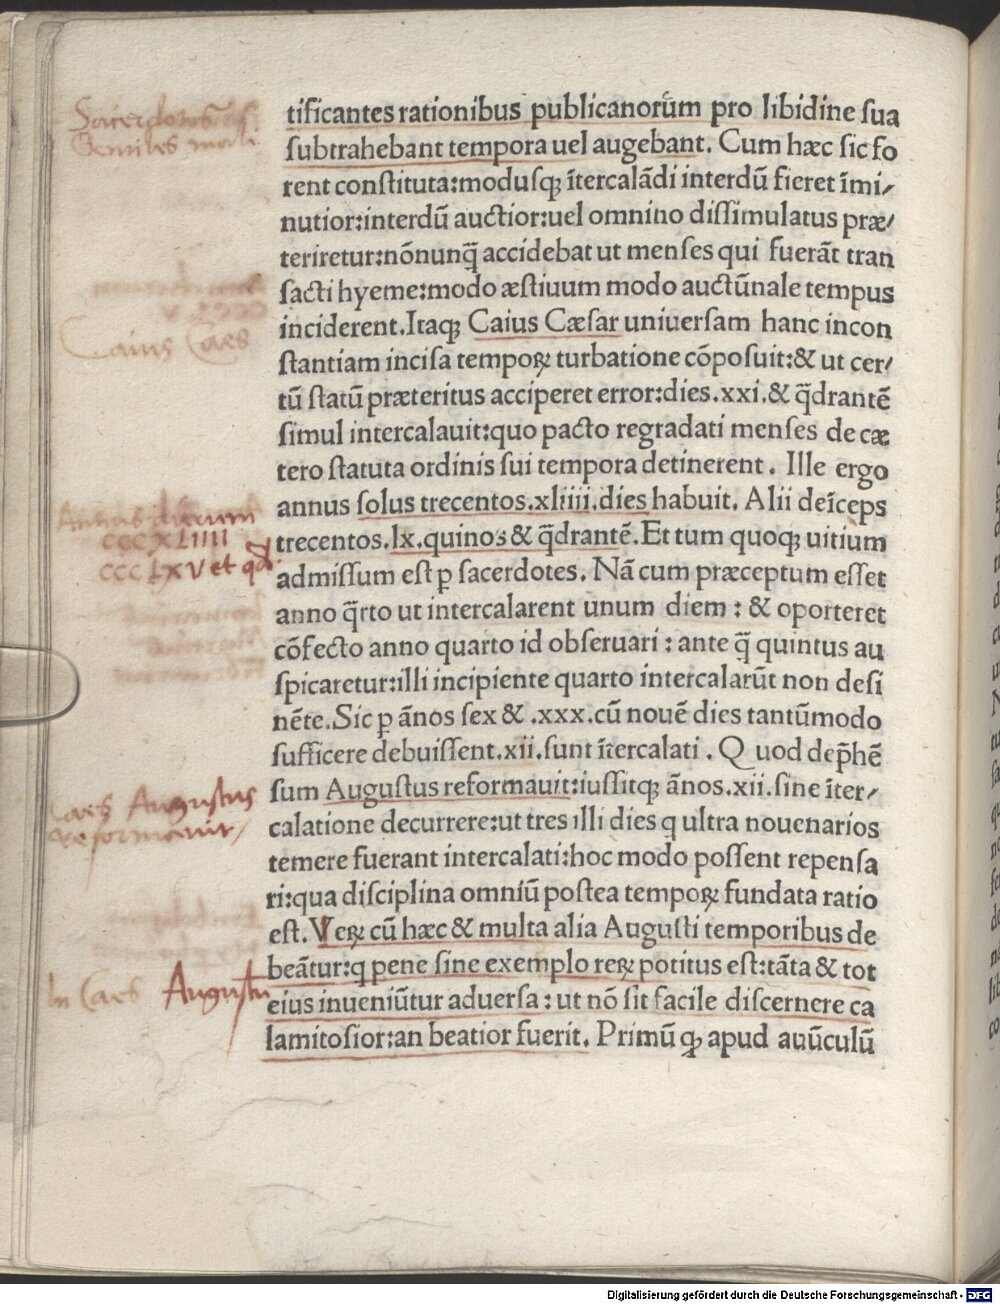 tificantes rationibus publicanorūm pro libidine sua
subtrahebant tempora uel augebant. Cum hæc sic fo
rent constituta:modusqȝ ītercalādi interdū fieret īmi/
nutior:interdū auctior:uel omnino dissimulatus præ/
teriretur:nōnunq̄ accidebat ut menses qui fuerāt tran
sacti hyeme:modo æstiuum modo auctūnale tempus
inciderent.Itaqȝ Caius Cæsar uniuersam hanc incon
stantiam incisa temporꝝ turbatione cōposuit:& ut cer/
tū statū præteritus acciperet error:dies.xxi.& q̄drantē
simul intercalauit:quo pacto regradati menses de cæ
tero statuta ordinis sui tempora detinerent. Ille ergo
annus solus trecentos.xliiii.dies habuit. Alii deīceps
trecentos.lx.quinos & q̄drantē.Et tum quoqȝ uitium
admissum est ꝑ sacerdotes. Nā cum præceptum esset
anno q̄rto ut intercalarent unum diem : & oporteret
cōfecto anno quarto id obseruari : ante q̄ quintus au
spicaretur:illi incipiente quarto intercalarūt non desi
nēte.Sic ꝑ ānos sex & .xxx.cū nouē dies tantūmodo
sufficere debuissent.xii.sunt ītercalati . Q uod dep̄hē
sum Augustus reformauit:iussitqȝ ānos.xii.sine īter/
calatione decurrere:ut tres illi dies q ultra nouenarios
temere fuerant intercalati:hoc modo possent repensa
ri:qua disciplina omniū postea temporꝝ fundata ratio
est.Verꝝ cū hæc & multa alia Augusti temporibus de
beātur:q pene sine exemplo rerꝝ potitus est:tāta & tot
eius inueniūtur aduersa : ut nō sit facile discernere ca
lamitosior:an beatior fuerit. Primū qȝ apud auūculū
Caius Caes
Annus dierum
CCCXLIIII
CCCLXV et qd
Caes Augustus
Reformauit
In Caes Augustu
Digitalisierung gefördert durch die Deutsche Forschungsgemeinschaft - DFG